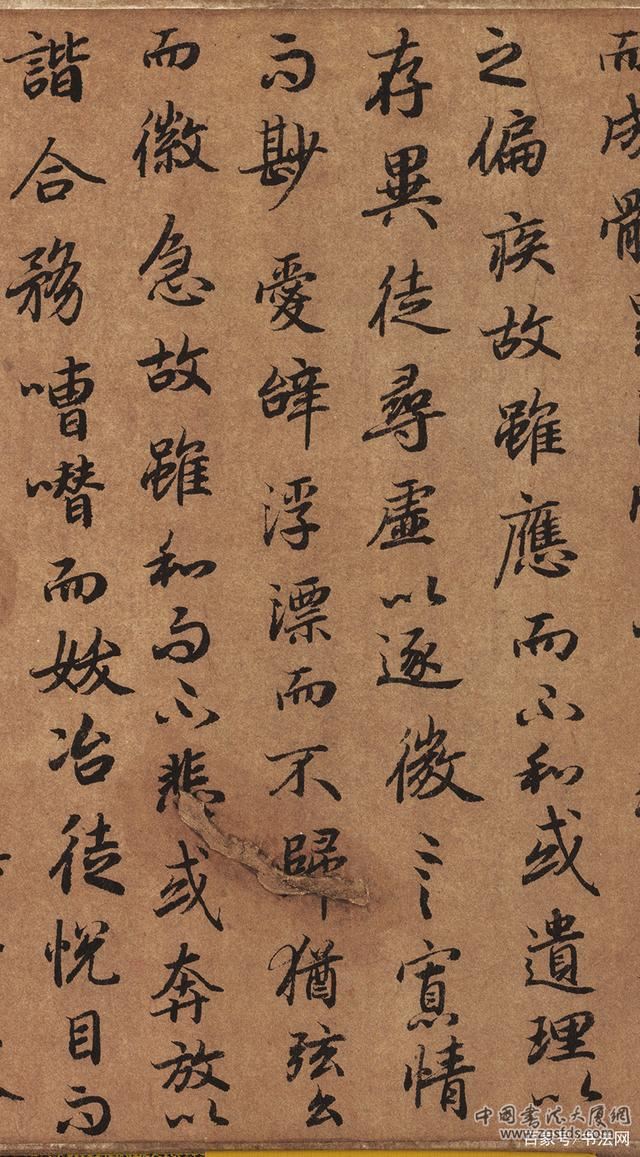 而成體
之偏疾故雖應而不和或遺理以
存異徒尋虛以逐微言寡情
而尠愛辭浮漂而不歸猶弦幺
而徽急故雖和而不悲或奔放以
諧合務嘈囋而妖冶徒悅目而
中国书法大厦网
www.zgsfds.com
百家号/书法网